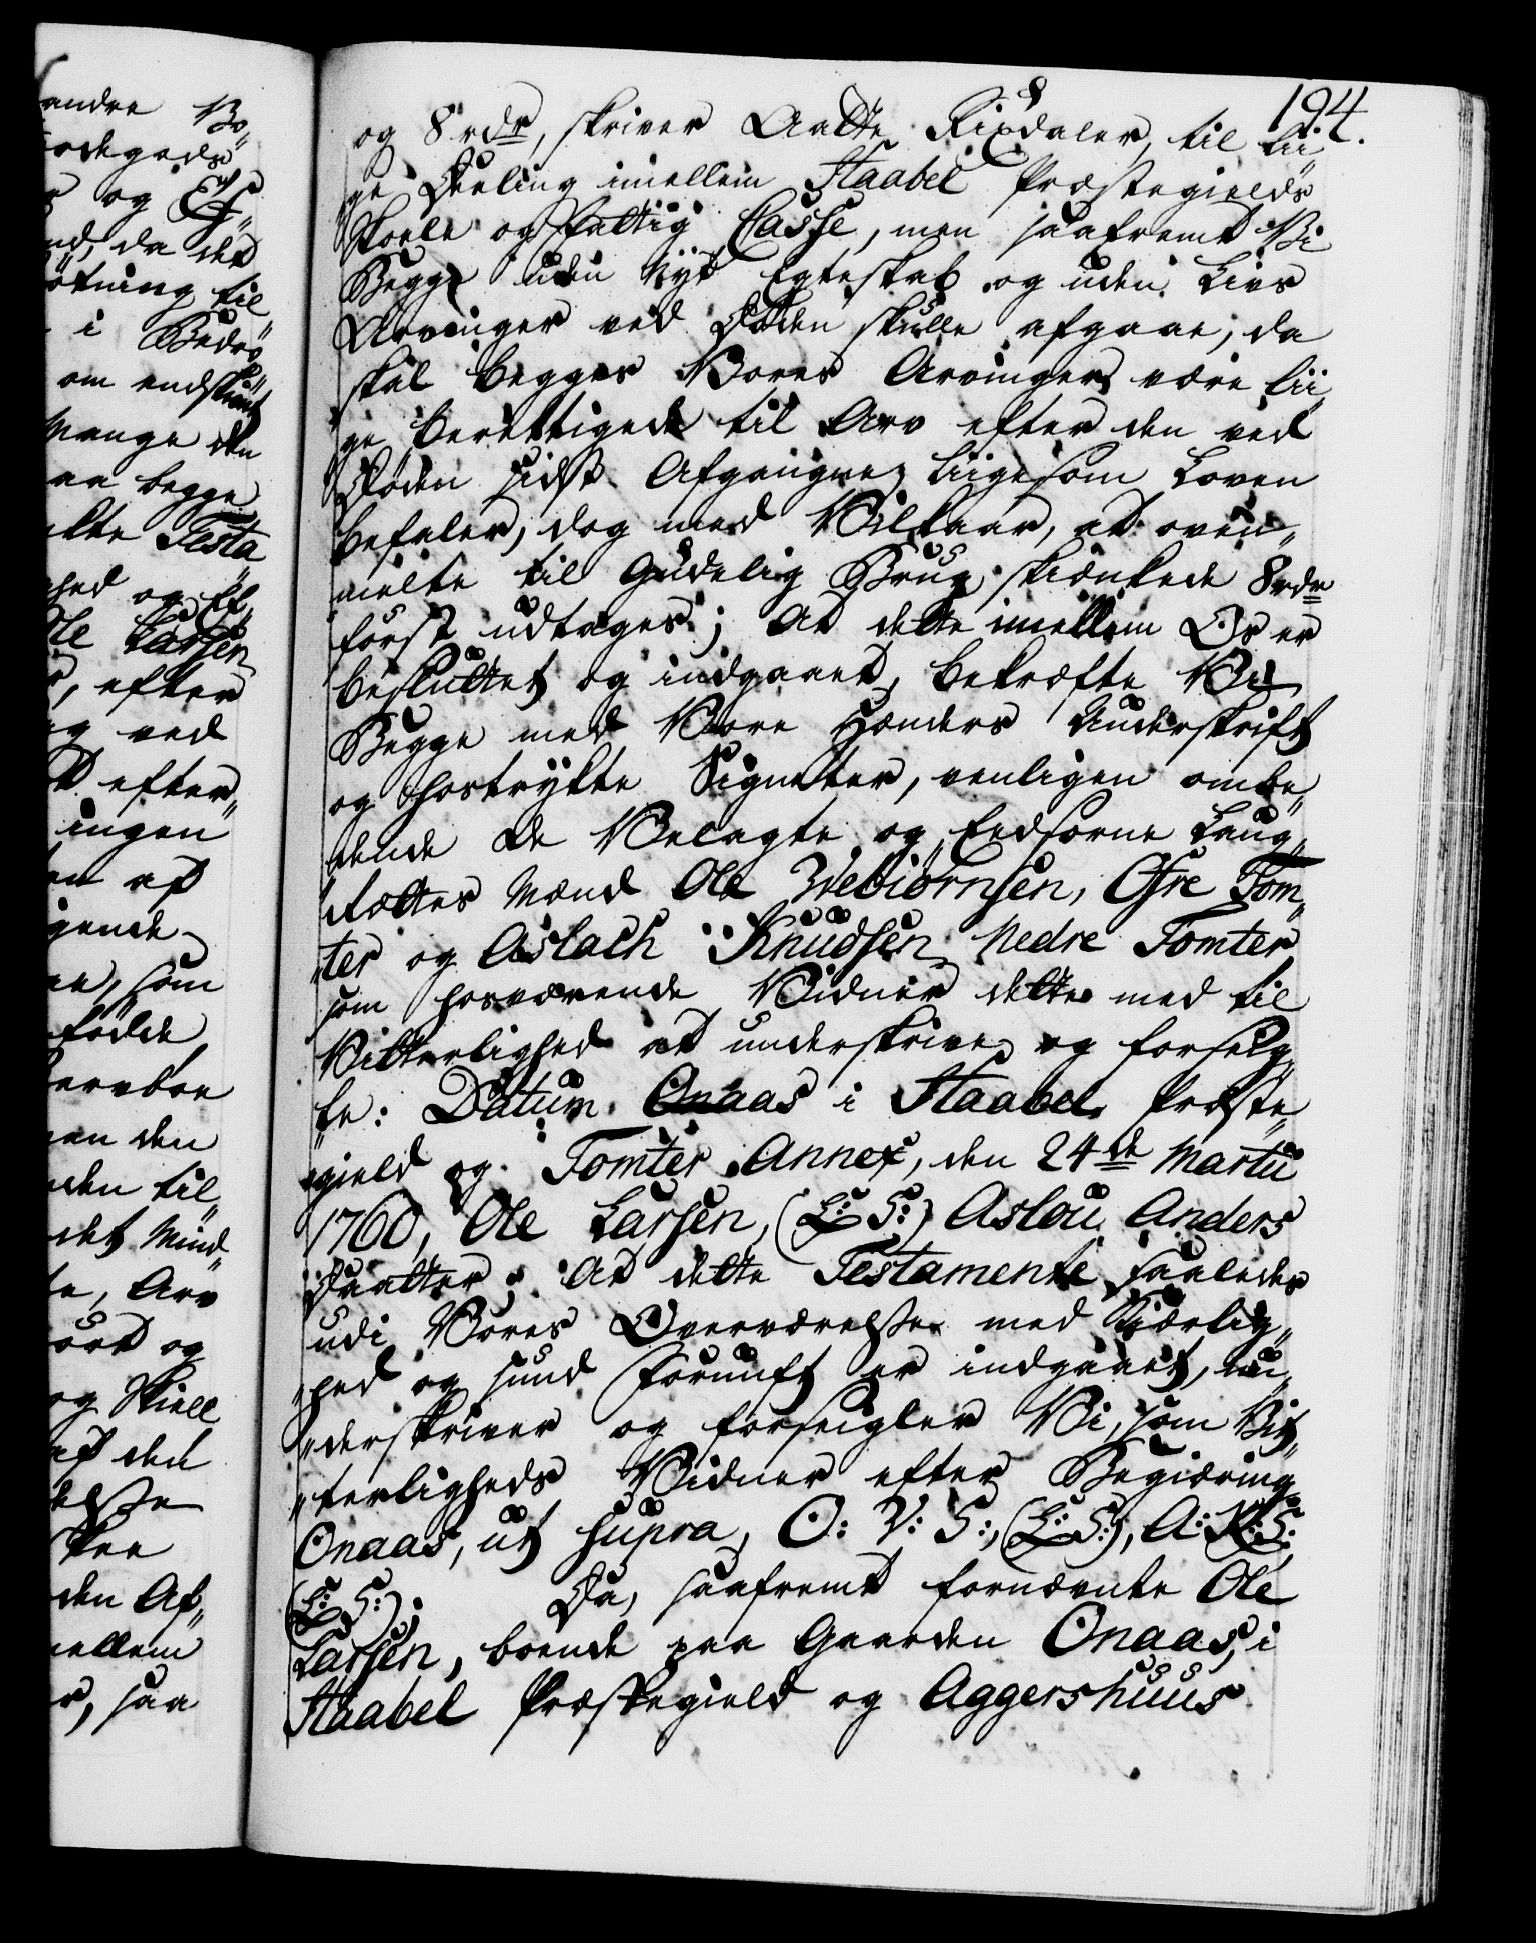 194.
og 8 rdr, skriver Aatte Rixdaler, til lii„
„ge Deeling imellem Haabel Præstegields
Skoele og Fattig Casse, men saafremt Vi
Begge uden Nyt Egteskab og uden Livs
Arvinger ved Døden skulle afgaae, da
skal begges Vores Arvinger være lii„
„ge berettigede til Arv efter den ved
Døden sidst Afgangne, liigesom Loven
befaler, dog med Vilkaar, at oven„
melte til Gudelig Brug skiænkede 8 rdr
først udtages; At dette imellem Os er
besluttet og indgaaet, bekræfte Vi
Begge med Vore Hænders Underskrift
og hostrykte Signeter, venligen ombe„
dende de Velagte og Eedsorne Laug„
rættes Mænd Ole Webiørnsen, Øfre Tom„
„ter og Aslach Knudsen Nedre Tomter
som hosværende Vidner dette med til
Vitterlighed at underskrive og forseig„
le: Datum Onaas i Haabel Præste„
„gield og Tomter Annex, den 24de Martii
1760, Ole Larsen, (L: S:) Aslou Anders
Daatter; At dette Testamente saaledes
udi Vores Overværelse med Kiærlig„
„hed og sund Fornuft er indgaaet, un„
„derskriver og forseigler Vi, som Vit„
„terligheds Vidner efter Begiæring
Onaas, ut supra, O: V: S:, (L: S:), A: K: S:
(L: S:). Da, saafremt fornævnte Ole
Larsen, boende paa Gaarden Onaas, i
Haabel Præstegield og Aggershuus